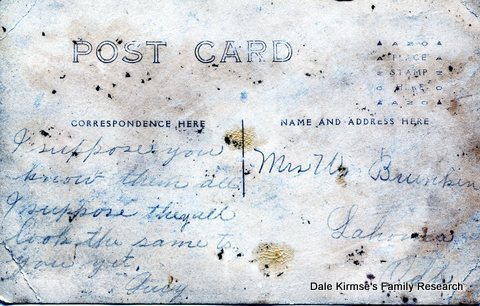 POST CARD
AZO
PLACE
STAMP
HERE
AZO
CORRESPONDENCE HERE
NAME AND ADDRESS HERE
I suppose you
know them all
I suppose they all
look the same to
you yet.
Mrs W
Lahoma
Okla
Dale Kirmse's Family Research